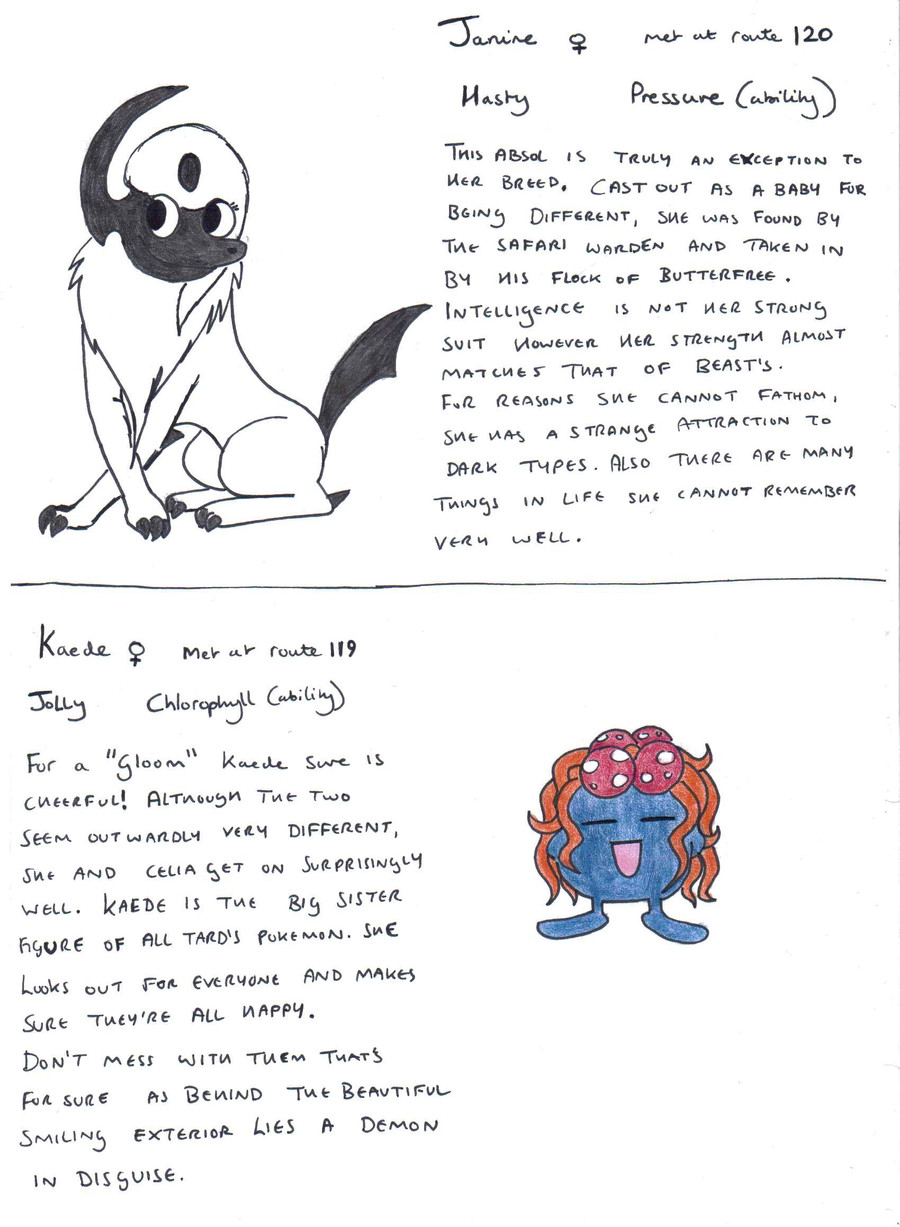 Janine ♀ met at route 120
Hasty Pressure (ability)
THIS ABSOL IS TRULY AN EXCEPTION TO
HER BREED. CAST OUT AS A BABY FOR
BEING DIFFERENT, SHE WAS FOUND BY
THE SAFARI WARDEN AND TAKEN IN
BY HIS FLOCK OF BUTTERFREE.
INTELLIGENCE IS NOT HER STRONG
SUIT HOWEVER HER STRENGTH ALMOST
MATCHES THAT OF BEAST'S.
FOR REASONS SHE CANNOT FATHOM,
SHE HAS A STRANGE ATTRACTION TO
DARK TYPES. ALSO THERE ARE MANY
THINGS IN LIFE SHE CANNOT REMEMBER
VERY WELL.
Kaede ♀ Met at route 119
JOLLY Chlorophyll (ability)
For a "Gloom" Kaede sure is
CHEERFUL! ALTHOUGH THE TWO
SEEM OUTWARDLY VERY DIFFERENT,
SHE AND CELIA GET ON SURPRISINGLY
WELL. KAEDE IS THE BIG SISTER
FIGURE OF ALL TARD'S POKEMON. SHE
LOOKS OUT FOR EVERYONE AND MAKES
SURE THEY'RE ALL HAPPY.
DON'T MESS WITH THEM THAT'S
FOR SURE AS BEHIND THE BEAUTIFUL
SMILING EXTERIOR LIES A DEMON
IN DISGUISE.